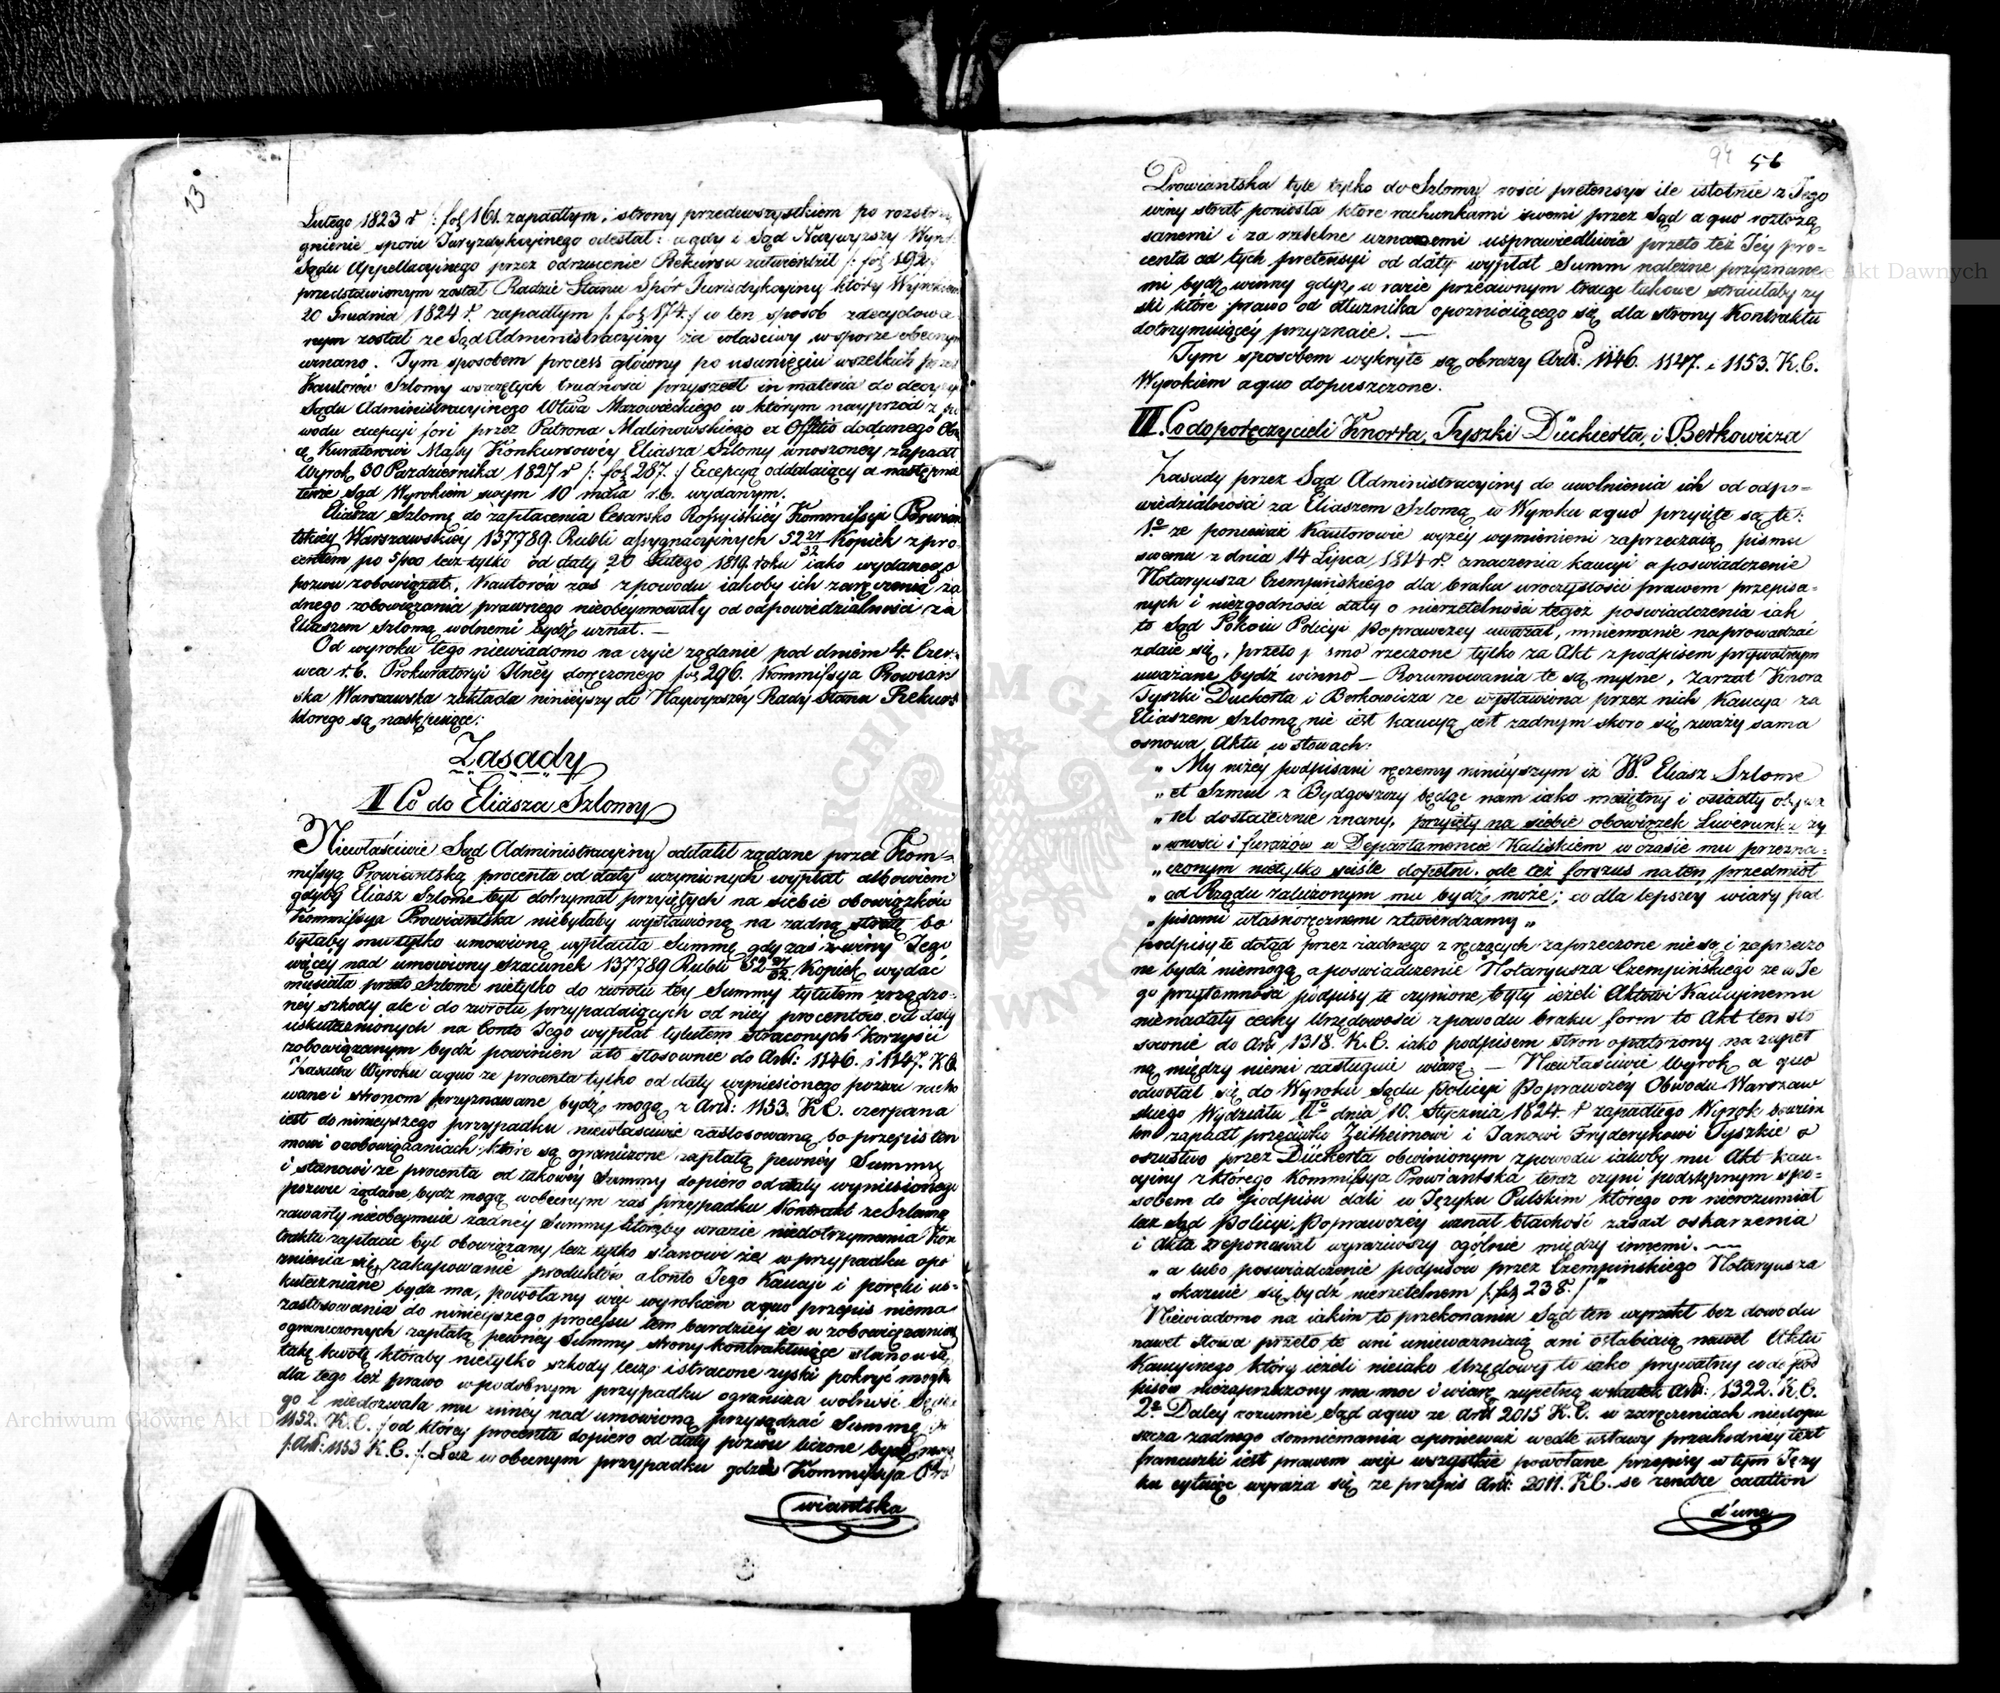 13.
Lutego 1823 r /: fol 161. zapadłym, strony przedewszystkiem po rozstrzy
gnienie sporu Juryzdykcyinego odesłał: a gdy i Sąd Naywyższy Wyrok
Sądu Appellacyinego przez odrzucenie Rekursu zatwierdził /: fol 192:/
przedstawionym został Radzie Stanu Spór Jurisdykcyiny który Wyrokiem
20 Grudnia 1824 r. zapadłym /: fol 174:/ w ten sposób zdecydowa
nym został ze Sąd Administracyiny za właściwy w sporze obecnym
uznano. Tym sposobem process główny po usunięciu wszelkich przez
Kautorów Szlomy wszczętych trudności przyszedł in materia do decyzyi
Sądu Administracyinego Wtwa Mazowieckiego w którym nayprzód z po
wodu excepcyi fori przez Patrona Malinowskiego ex Officio dodanego Obroń
cę Kuratorowi Massy Konkursowéy Eliasza Szlomy wnoszonéy zapadł
Wyrok 30 Października 1827 r /: fol 287:/ Excepcyą oddalaiący a następnie
tenże Sąd Wyrokiem swym 10 maia r. b. wydanym.
Eliasza Szlomę do zapłacenia Cesarsko Rossyiskiéy Kommissyi Prowian
tskiéy Warszawskiéy 137789. Rubli assygnacyinych 52 27/32 Kopiek z pro
centem po 5/100 lecz tylko od daty 20 Lutego 1819. roku iako wydanego
pozwu zobowiązał, Kautorów zaś z powodu iakoby ich zaręczenia ża
dnego zobowiązania prawnego nieobeymowały od odpowiedzialności za
Eliaszem Szlomą wolnemi bydź uznał. —
Od wyroku tego niewiadomo na czyie żądanie pod dniem 4. Czer-
wca r. b. Prokuratoryi Jlnéy doręczonego fol 296. Kommissya Prowian
ska Warszawska zakłada ninieyszy do Naywyższéy Rady Stanu Rekurs
którego są następuiące:
Zasady
II Co do Eliasza Szlomy
Niewłaściwie Sąd Administracyiny oddalił żądane przez Kom-
missyą Prowiantską procenta od daty uczynionych wypłat albowiem
gdyby Eliasz Szlome był dotrzymał przyiętych na siebie obowiązków
Kommissya Prowiantska niebyłaby wystawioną na żadną stratę bo
byłaby mu tylko umowioną wypłaciła Summę gdy zaś z winy Jego
więcéy nad umowiony szacunek 137789 Rubli 52 27/32 Kopiek wydać
musiała przeto Szlome nietylko do zwrotu téy Summy tytułem zrządzo-
néy szkody ale i do zwrotu przypadaiących od niéy procentów od daty
uskutecznionych na Conto Jego wypłat tytułem straconych korzyści
zobowiązanym bydź powinien a to stosownie do Artt: 1146. i 1147. K.C.
Zasada Wyroku a quo ze procenta tylko od daty wyniesionego pozwu racho
wane i stronom przyznawane bydź mogą z Artt: 1153. K.C. czerpana
iest do ninieyszego przypadku niewłaściwie zastosowaną bo przepis ten
mówi o zobowiązaniach które są ograniczone zapłatą pewnéy Summy
i stanowi ze procenta od takowéy Summy dopiero od daty wyniesionego
pozwu żądane bydź mogą w obecnym zaś przypadku Kontrakt ze Szlomą
zawarty nieobeymuie żadnéy Summy którąby w razie niedotrzymania Kon
traktu zapłacić był obowiązany lecz tylko stanowi że w przypadku opó
źnienia się zakupowanie produktów a Conto Jego Kaucyi i poręki us-
kuteczniane bydź ma, powołany więc wyrokiem a quo przepis niema
zastosowania do ninieyszego processu tem bardziéy że w zobowiązaniach
ograniczonych zapłatą pewnéy Summy strony kontraktuiące stanowią
taką kwotę któraby nietylko szkody lecz i stracone zyski pokryć mogła
dla tego też prawo w podobnym przypadku ogranicza wolność Sędzie
go i niedozwala mu innéy nad umówioną przysądzać Summę
1152. K.C. / od któréy procenta dopiero od daty pozwu liczone bydź mogą
/: Artt: 1153 K.C. :/ Lecz w obecnym przypadku gdzie Kommissya Pro
wiantska
94 56
Prowiantska tyle tylko do Szlomy rości pretensyi ile istotnie z Jego
winy strat poniosła które rachunkami swemi przez Sąd a quo roztrzą
sanemi i za rzetelne uznanemi usprawiedliwia przeto też Jéy pro-
centa od tych pretensyi od daty wypłat Summ należne przyznane
mi bydź winny gdyż w razie przeciwnym tracąc takowe straciłaby zy
ski które prawo od dłużnika opozniaiącego się dla strony Kontraktu
dotrzymuiącéy przyznaie. —
Tym sposobem wykryte są obrazy Artt: 1146. 1147. i 1153. K.C.
Wyrokiem a quo dopuszczone.
III. Co do poręczycieli Knorra, Tyszki Dückerta, i Berkowicza
Zasady przez Sąd Administracyiny do uwolnienia ich od odpo-
wiedzialności za Eliaszem Szlomą w Wyroku a quo przyięte są te:
1o ze ponieważ Kautorowie wyżéy wymienieni zaprzeczaią pismu
swemu z dnia 14 Lipca 1814 r. znaczenia kaucyi a poświadczenie
Notaryusza Czempińskiego dla braku uroczystości prawem przepisa-
nych i niezgodności daty o nierzetelności tegoż poświadczenia iak
to Sąd Pokoiu Policyi Poprawczey uważał, mniemanie naprowadzać
zdaie się, przeto pismo rzeczone tylko za Akt z podpisem prywatnym
uważane bydź winno — Rozumowania te są mylne, Zarzut Knora
Tyszki Duckerta i Berkowicza ze wystawiona przez nich Kaucya za
Eliaszem Szlomą nie iest kaucyą iest żadnym skoro się zważy sama
osnowa Aktu w słowach:
„ My niżéy podpisani ręczemy ninieyszym iż W. Eliasz Szlome
„ et Szmul z Bydgoszczy będąc nam iako maiętny i osiadły obywa
„ tel dostatecznie znany, przyięty na siebie obowiązek Liwerunku ży
„ wności i furażów w Departamencie Kaliskiem w czasie mu przezna-
„ czonym nietylko ściśle dopełni. ale też forszus na ten przedmiot
„ od Rządu zaliczonym mu bydź może; co dla lepszey wiary pod
„ pisami własnoręcznemi ztwierdzamy „
podpisy te dotąd przez żadnego z ręczących zaprzeczone nie są i zaprzeczo
ne bydź niemogą a poświadczenie Notaryusza Czempińskiego ze w Je
go przytomności podpisy te czynione były ieżeli Aktowi Kaucyinemu
nienadały cechy Urzędowości z powodu braku form to Akt ten sto
sownie do Art 1318. K.C. iako podpisem stron opatrzony na zupeł
ną między niemi zasługuie wiarę. — Niewłaściwie Wyrok a quo
odwołał się do Wyroku Sądu Policyi Poprawczey Obwodu Warszaw
skiego Wydziału IIo dnia 10. Stycznia 1824. r zapadłego Wyrok bowiem
ten zapadł przeciwko Zeitheimowi i Janowi Fryderykowi Tyszkie o
oszustwo przez Dückerta obwinionym z powodu iakoby mu Akt kau-
cyiny z którego Kommissya Prowiantska teraz czyni podstępnym spo-
sobem do podpisu dali w Języku Polskim którego on nierozumiał
lecz Sąd Policyi Poprawczéy uznał błachość zasad oskarżenia
i Akta zreponował wyraziwszy ogólnie między innemi. —
„ a lubo poświadczenie podpisów przez Czempińskiego Notaryusza
„ okazuie się bydź nierzetelnem /: fol 238. :/ "
Niewiadomo na iakim to przekonaniu Sąd ten wyrzekł bez dowodu
nawet słowa przeto te ani unieważniaią ani osłabiaią nawet Aktu
Kaucyinego który ieżeli nieiako Urzędowy to iako prywatny w do pod
pisów niezaprzeczony ma moc i wiarę zupełną w skutek Artt: 1322. K.C.
2o Daley rozumie Sąd a quo ze Art 2015 K.C. w zaręczeniach niedopu
szcza żadnego domniemania a ponieważ wedle ustawy przechodniéy text
francuzki iest prawem więc wszystkie powołane przepisy w tym Języ
ku cytuiąc wyraża się ze przepis Art: 2011. K.C. se rendre caution
d'une
Archiwum Główne Akt Dawnych